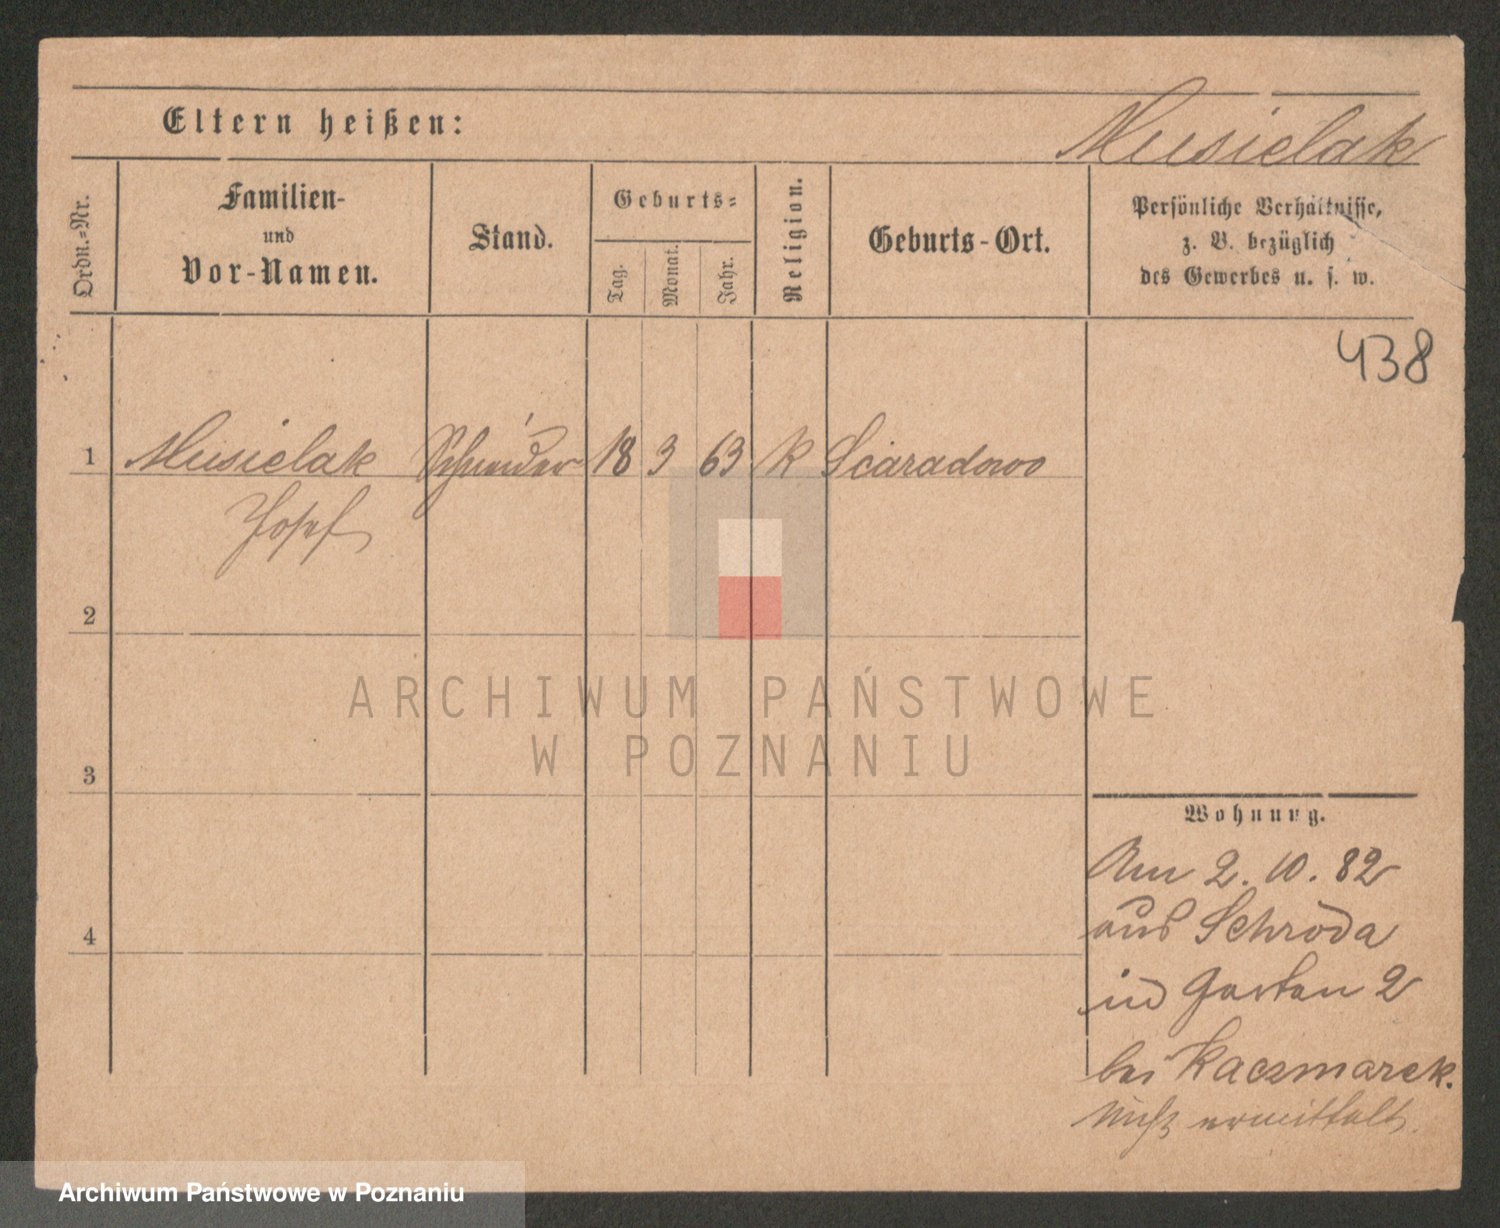 Eltern heißen:
Musielak
Ordn.=Nr.
Familien-
und
Vor-Namen.
Stand.
Geburts=
Tag.
Monat.
Jahr.
Religion.
Geburts-Ort.
Persönliche Verhältnisse,
z. B. bezüglich
des Gewerbes u. s. w.
438
1 Musielak Schneider 18 3 63 K Sciaradowo
Josef
2
ARCHIWUM PAŃSTWOWE
W POZNANIU
3
Wohnung.
Am 2. 10. 82
aus Schroda
in Garten 2
bei Kaczmarek.
Nicht ermittelt.
4
Archiwum Państwowe w Poznaniu